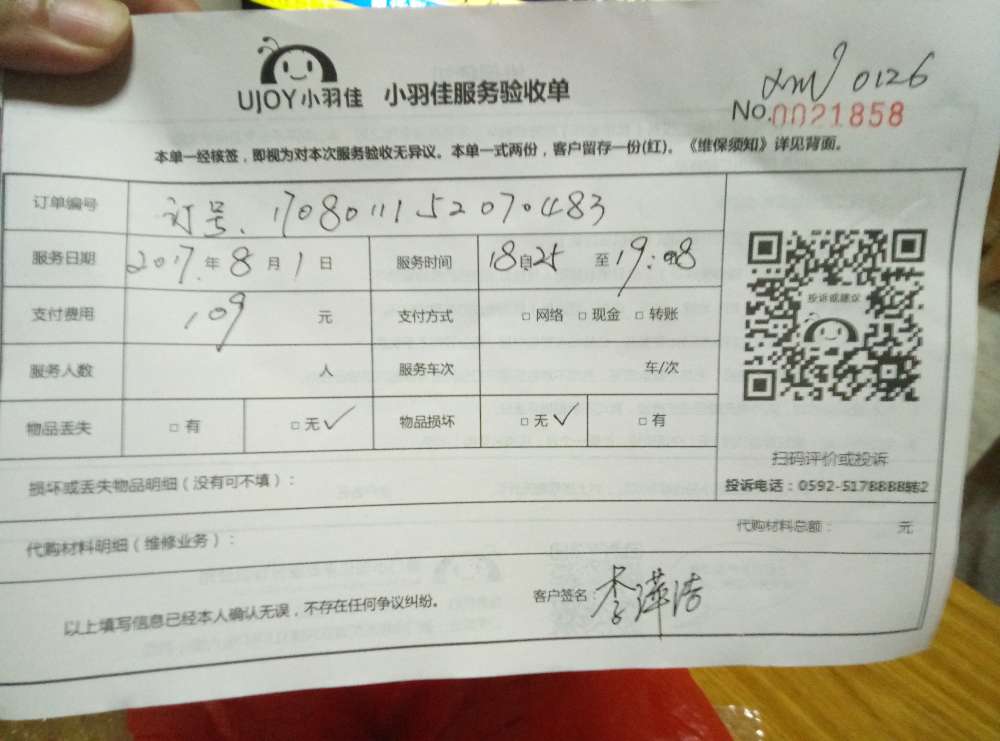 UJOY小羽佳 小羽佳服务验收单
xm 0126
No.0021858
本单一经核签，即视为对本次服务验收无异议。本单一式两份，客户留存一份(红)。《维保须知》详见背面。
订单编号 订号. 1708011152070483
服务日期 2017.年 8 月 1 日 服务时间 18:25 至 19:08
支付费用 109 元 支付方式 □ 网络 □ 现金 □ 转账
服务人数 人 服务车次 车/次
物品丢失 □ 有 □ 无 ✓ 物品损坏 □ 无 ✓ □ 有
投诉或建议
扫码评价或投诉
投诉电话：0592-5178888转2
损坏或丢失物品明细（没有可不填）：
代购材料明细（维修业务）：
代购材料总额： 元
以上填写信息已经本人确认无误，不存在任何争议纠纷。 客户签名：李 浩